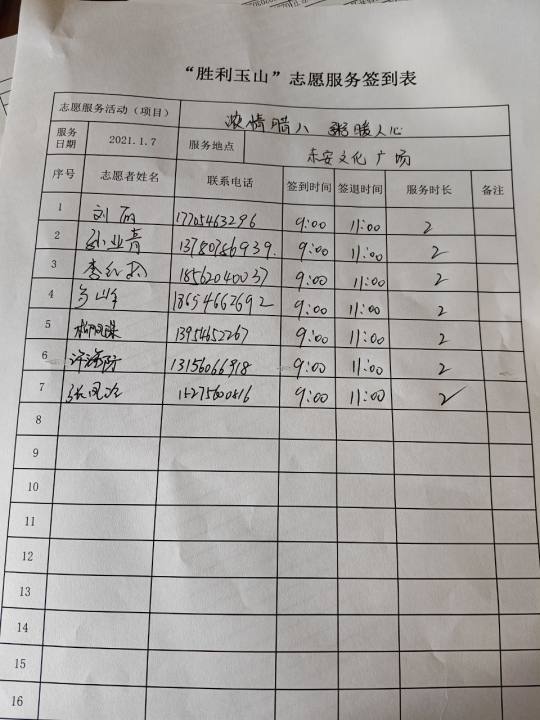 “胜利玉山”志愿服务签到表
志愿服务活动（项目） 浓情腊八 粥暖人心
服务日期 2021.1.7 服务地点 东安文化广场
序号 志愿者姓名 联系电话 签到时间 签退时间 服务时长 备注
1 刘丽 17705463296 9:00 11:00 2
2 孙业青 13780786939 9:00 11:00 2
3 李红 18562040037 9:00 11:00 2
4 18654662692 9:00 11:00 2
5 13954652267 9:00 11:00 2
6 许 13156066918 9:00 11:00 2
7 张凤 15275600816 9:00 11:00 2
8
9
10
11
12
13
14
15
16